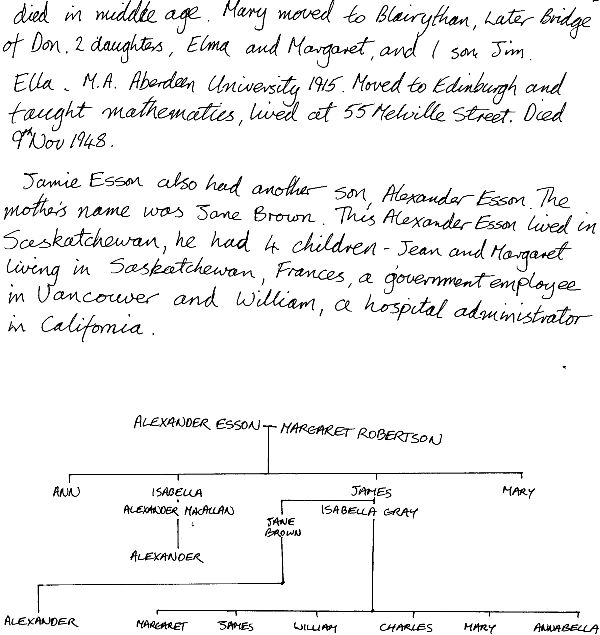 died in middle age. Mary moved to Blairythan, Later Bridge
of Don. 2 daughters, Elma and Margaret, and 1 son Jim.
Ella - M.A. Aberdeen University 1915. Moved to Edinburgh and
taught mathematics, lived at 55 Melville Street. Died
9th Nov 1948.
Jamie Esson also had another son, Alexander Esson. The
mother's name was Jane Brown. This Alexander Esson lived in
Saskatchewan, he had 4 children - Jean and Margaret
living in Saskatchewan, Frances, a government employee
in Vancouver and William, a hospital administrator
in California.
ALEXANDER ESSON - MARGARET ROBERTSON
ANN ISABELLA JAMES MARY
ALEXANDER MACALLAN ISABELLA GRAY
JANE
BROWN
ALEXANDER
ALEXANDER MARGARET JAMES WILLIAM CHARLES MARY ANNABELLA